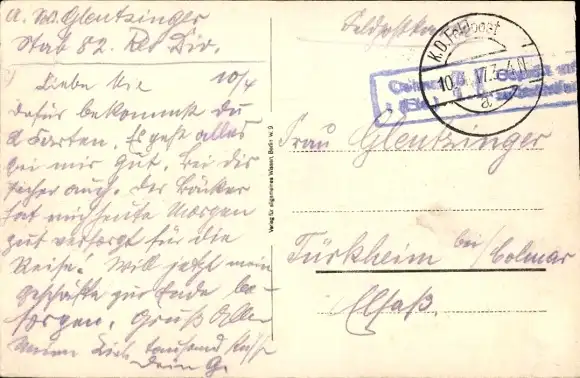 A. W. Glentzinger
Stab 82. Res Div.
10/4
Liebe
dafür bekommst du
2 Karten. Es geht alles
bei mir gut. Bei dir
sicher auch. Der Bäcker
hat mich heute Morgen
gut versorgt für die
Reise! Will jetzt mein
Geschäfte zur Ende be-
sorgen. Gruß Alle
tausend Küsse
Dein G.
Verlag für allgemeines Wissen, Berlin W. 9
Feldpostkarte
K.D. Feldpost
10. 17. 3-4N
a.
Frau Glentzinger
Türkheim bei/Colmar
Elsaß